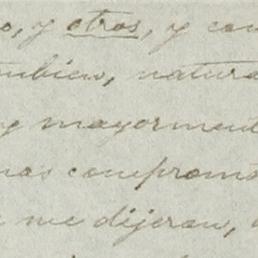 o, y otros, y con
tambien, natura
y mayorment
mas comprom
me dijeran,